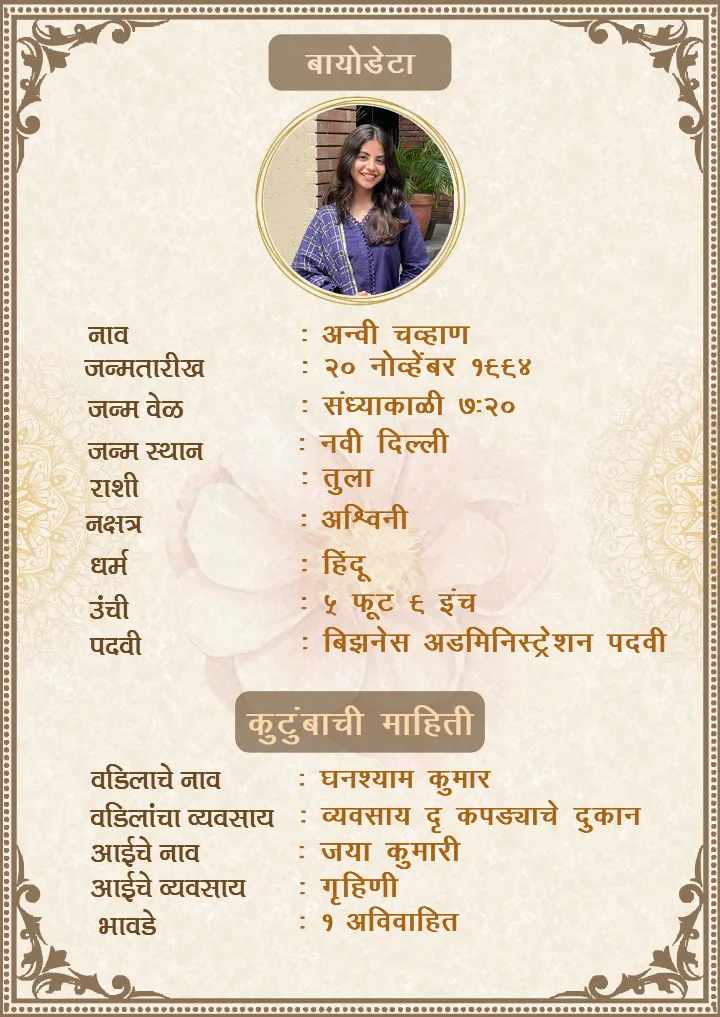 बायोडेटा
नाव : अन्वी चव्हाण
जन्मतारीख : २० नोव्हेंबर १९९४
जन्म वेळ : संध्याकाळी ७:२०
जन्म स्थान : नवी दिल्ली
राशी : तुला
नक्षत्र : अश्विनी
धर्म : हिंदू
उंची : ५ फूट ९ इंच
पदवी : बिझनेस अडमिनिस्ट्रेशन पदवी
कुटुंबाची माहिती
वडिलाचे नाव : घनश्याम कुमार
वडिलांचा व्यवसाय : व्यवसाय दृ कपड्याचे दुकान
आईचे नाव : जया कुमारी
आईचे व्यवसाय : गृहिणी
भावडे : १ अविवाहित